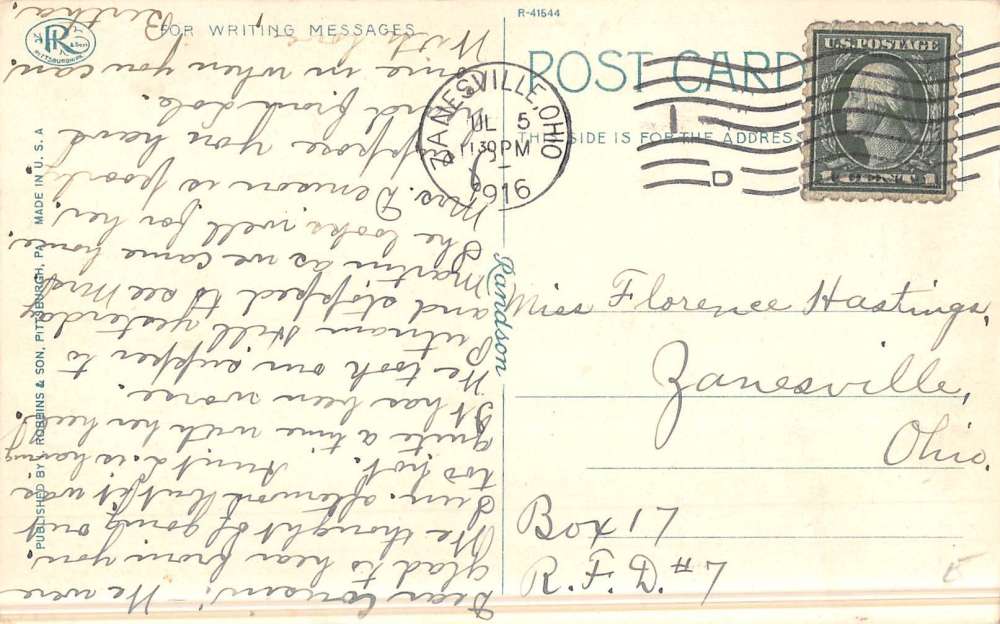 R-41544
FOR WRITING MESSAGES
POST CARD
THE SIDE IS FOR THE ADDRESS
ZANESVILLE, OHIO
JUL 5
1130PM
1916
U.S. POSTAGE
1 CENT 1
R
& Son
PITTSBURGH PA.
PUBLISHED BY I. ROBBINS & SON, PITTSBURGH, PA. MADE IN U.S.A
Randson
Miss Florence Hastings,
Zanesville,
Ohio.
Box 17
R.F.D. #7
Dear Cousin: We were
glad to hear from you.
We thought of going out
Sun. afternoon but it was
too hot. Aunt L. is having
quite a time with her heel.
It has been worse.
We took our supper to
Putnam Hill yesterday
and stopped to see Mrs
Martin as we came home.
She looks well for her.
Mrs. Denison is poorly
suppose you heard
and from Lole.
Come in when you can.
With love
Bertha.